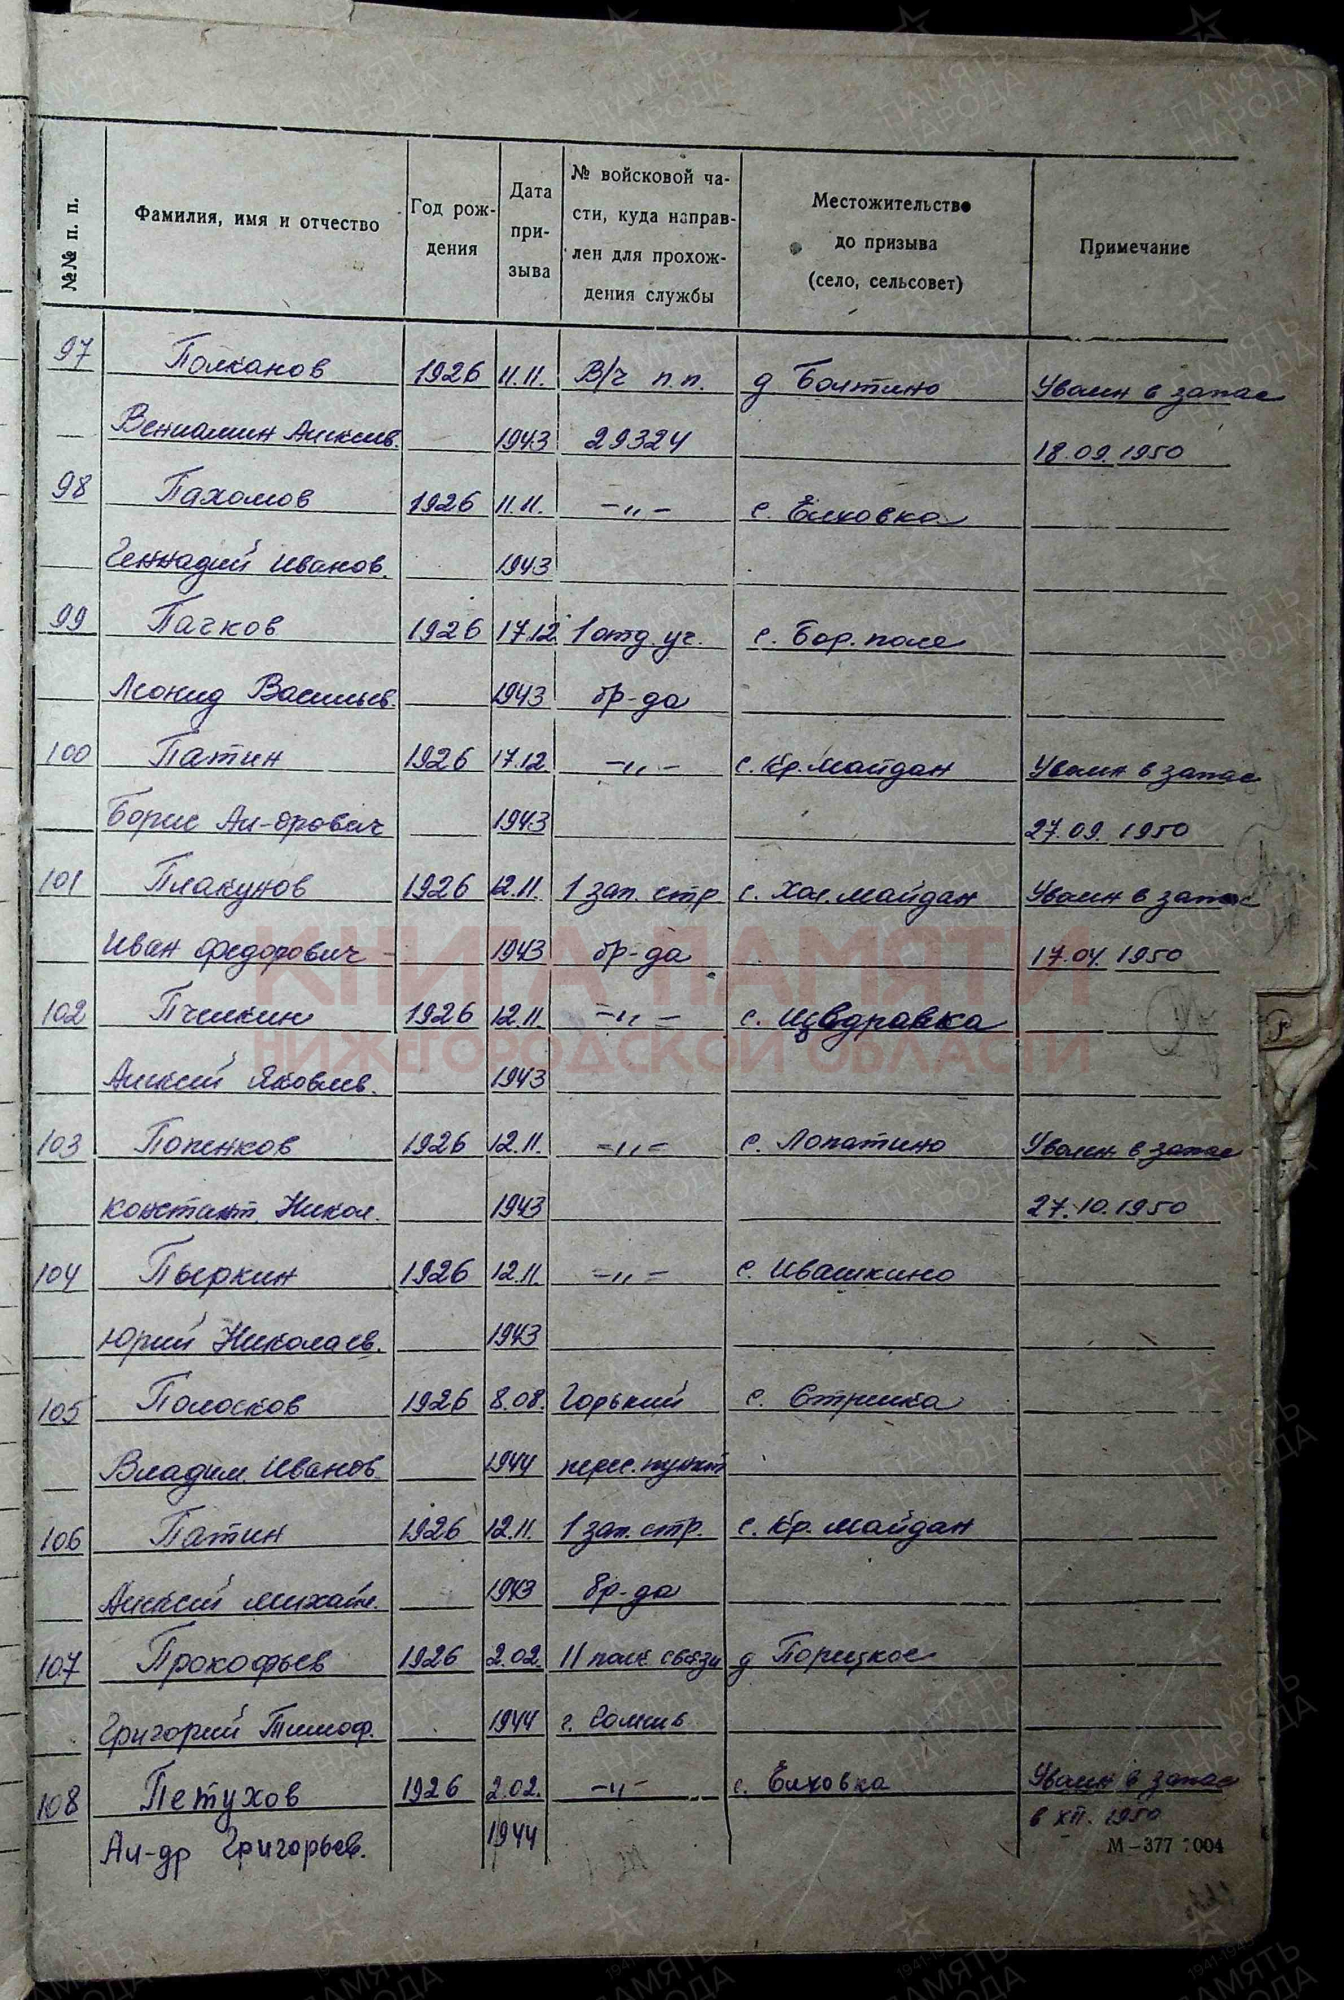 №№ п. п.
Фамилия, имя и отчество
Год рож-
дения
Дата
при-
зыва
№ войсковой ча-
сти, куда направ-
лен для прохож-
дения службы
Местожительство
до призыва
(село, сельсовет)
Примечание
97 Полканов 1926 11.11. В/ч п.п. д Болтино Уволен в запас
Вениамин Алексеев. 1943 29324 18.09.1950
98 Пахомов 1926 11.11. -"- с. Елховка
Геннадий Иванов. 1943
99 Пачков 1926 17.12 1 отд. уч. с. Бор. поле
Леонид Васильев. 1943 бр-да
100 Патин 1926 17.12 -"- с. Кр. Майдан Уволен в запас
Борис Ал-дрович 1943 27.09.1950
101 Плакунов 1926 12.11. 1 зап. стр с. Хол. майдан Уволен в запас
Иван Федорович 1943 бр-да 17.04.1950
102 Пчелкин 1926 12.11. -"- с.
Алексей Яковлев. 1943
103 Попенков 1926 12.11. -"- с. Лопатино Уволен в запас
Констант. Никол. 1943 27.10.1950
104 Пыркин 1926 12.11. -"- с. Ивашкино
Юрий Николаев. 1943
105 Полосков 1926 8.08. Горький с. Стрелка
Владим. Иванов. 1944 перес. пункт
106 Патин 1926 12.11. 1 зап. стр. с. Кр. майдан
Алексей Михайл. 1943 бр-да
107 Прокофьев 1926 2.02. 11 полк связи д Порецкое
Григорий Тимоф. 1944 г.
108 Петухов 1926 2.02. -"- с. Елховка Уволен в запас
Ал-др Григорьев. 1944 в XII. 1950
М-377 1004
КНИГА ПАМЯТИ
НИЖЕГОРОДСКОЙ ОБЛАСТИ
ПАМЯТЬ
НАРОДА